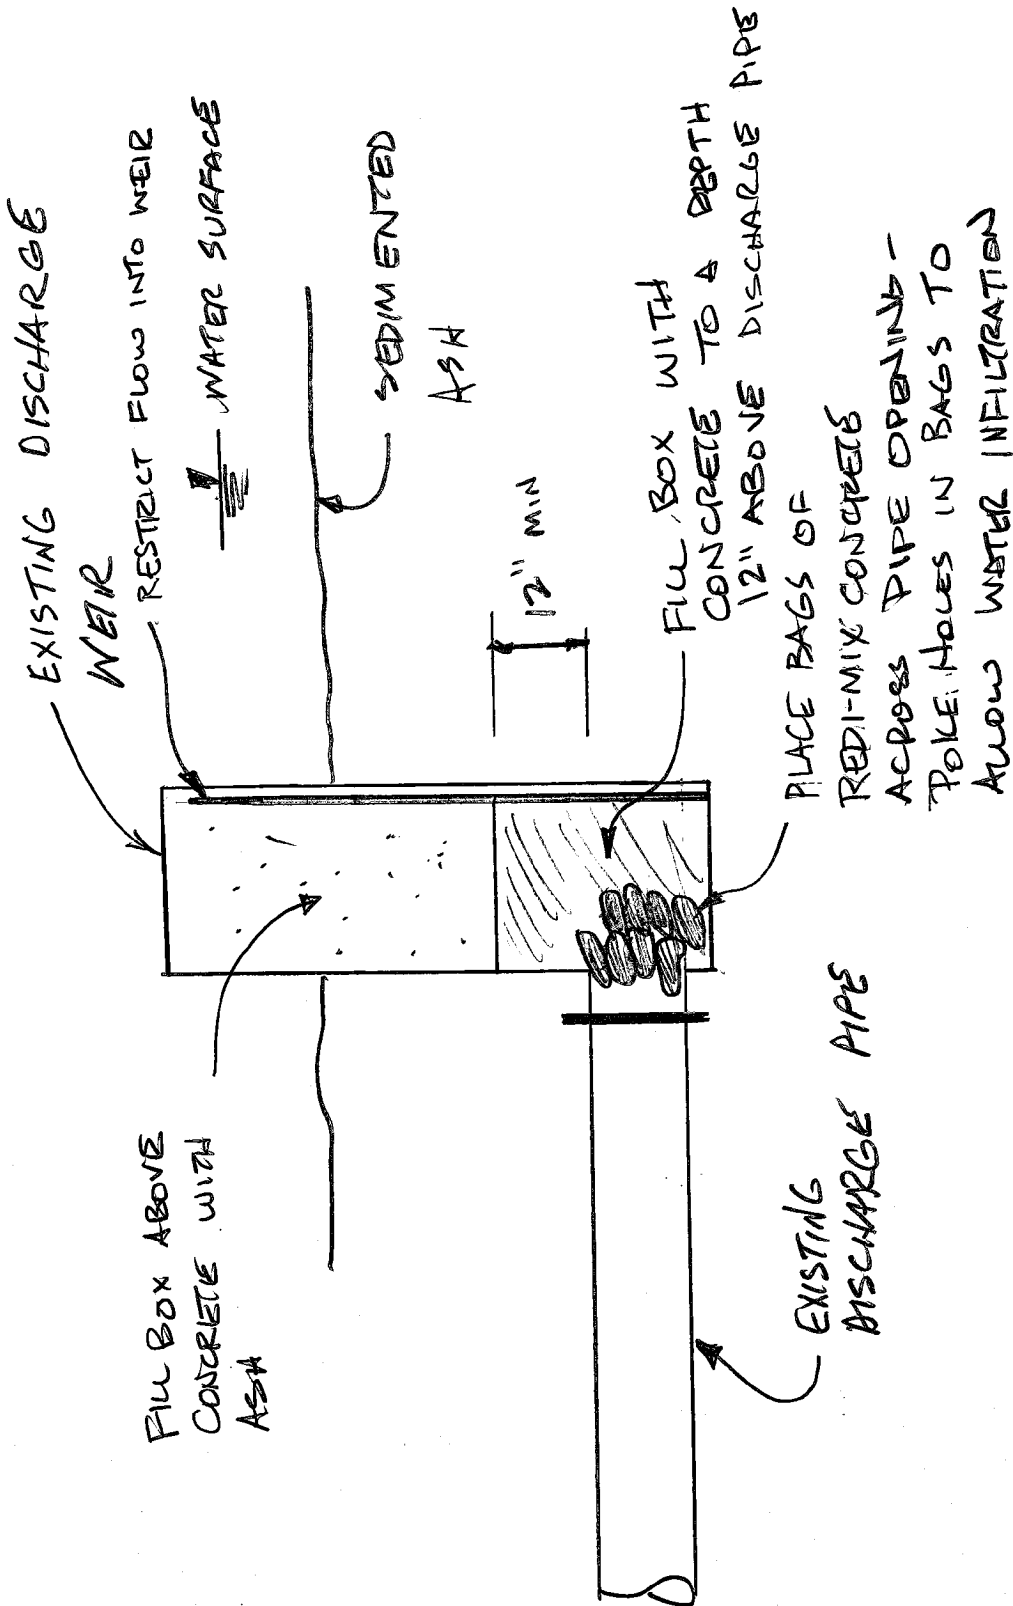 EXISTING DISCHARGE
WEIR
RESTRICT FLOW INTO WEIR
WATER SURFACE
SEDIMENTED
ASH
12" MIN
FILL BOX WITH
CONCRETE TO A DEPTH
12" ABOVE DISCHARGE PIPE
PLACE BAGS OF
REDI-MIX CONCRETE
ACROSS PIPE OPENING-
POKE HOLES IN BAGS TO
ALLOW WATER INFILTRATION
FILL BOX ABOVE
CONCRETE WITH
ASH
EXISTING
DISCHARGE PIPE